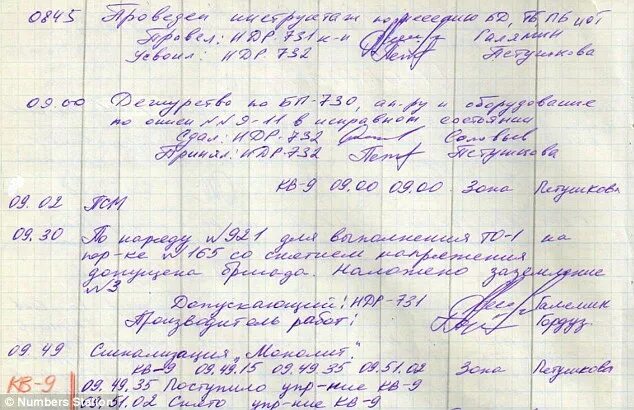 0845 Проведен инструктаж по несению БД, ТБ, ПБ
Провел: НДР-731 к-н Галямин
Усвоил: НДР 732 Петушкова
09.00 Дежурство по БП-730, ап-ру и оборудование
по описи №№9-11 в исправном состоянии
Сдал: НДР-732 Соловьев
Принял: НДР-732 Петушкова
КВ-9 09.00 09.00 Зона Петушкова
09.02 ПСМ
09.30 По наряду №921 для выполнения ТО-1 на
пер-ке №165 со снятием напряжения
допущена бригада. Наложено заземление
№3
Допускающий: НДР-731
Производитель работ:
09.49 Сигнализация "Монолит".
КВ-9 09.49.15 09.49.35 09.51.02 Зона Петушкова
КВ-9 09.49.35 Поступило упр-ние КВ-9
09.51.02 Снято упр-ние КВ-9
© Numbers Station